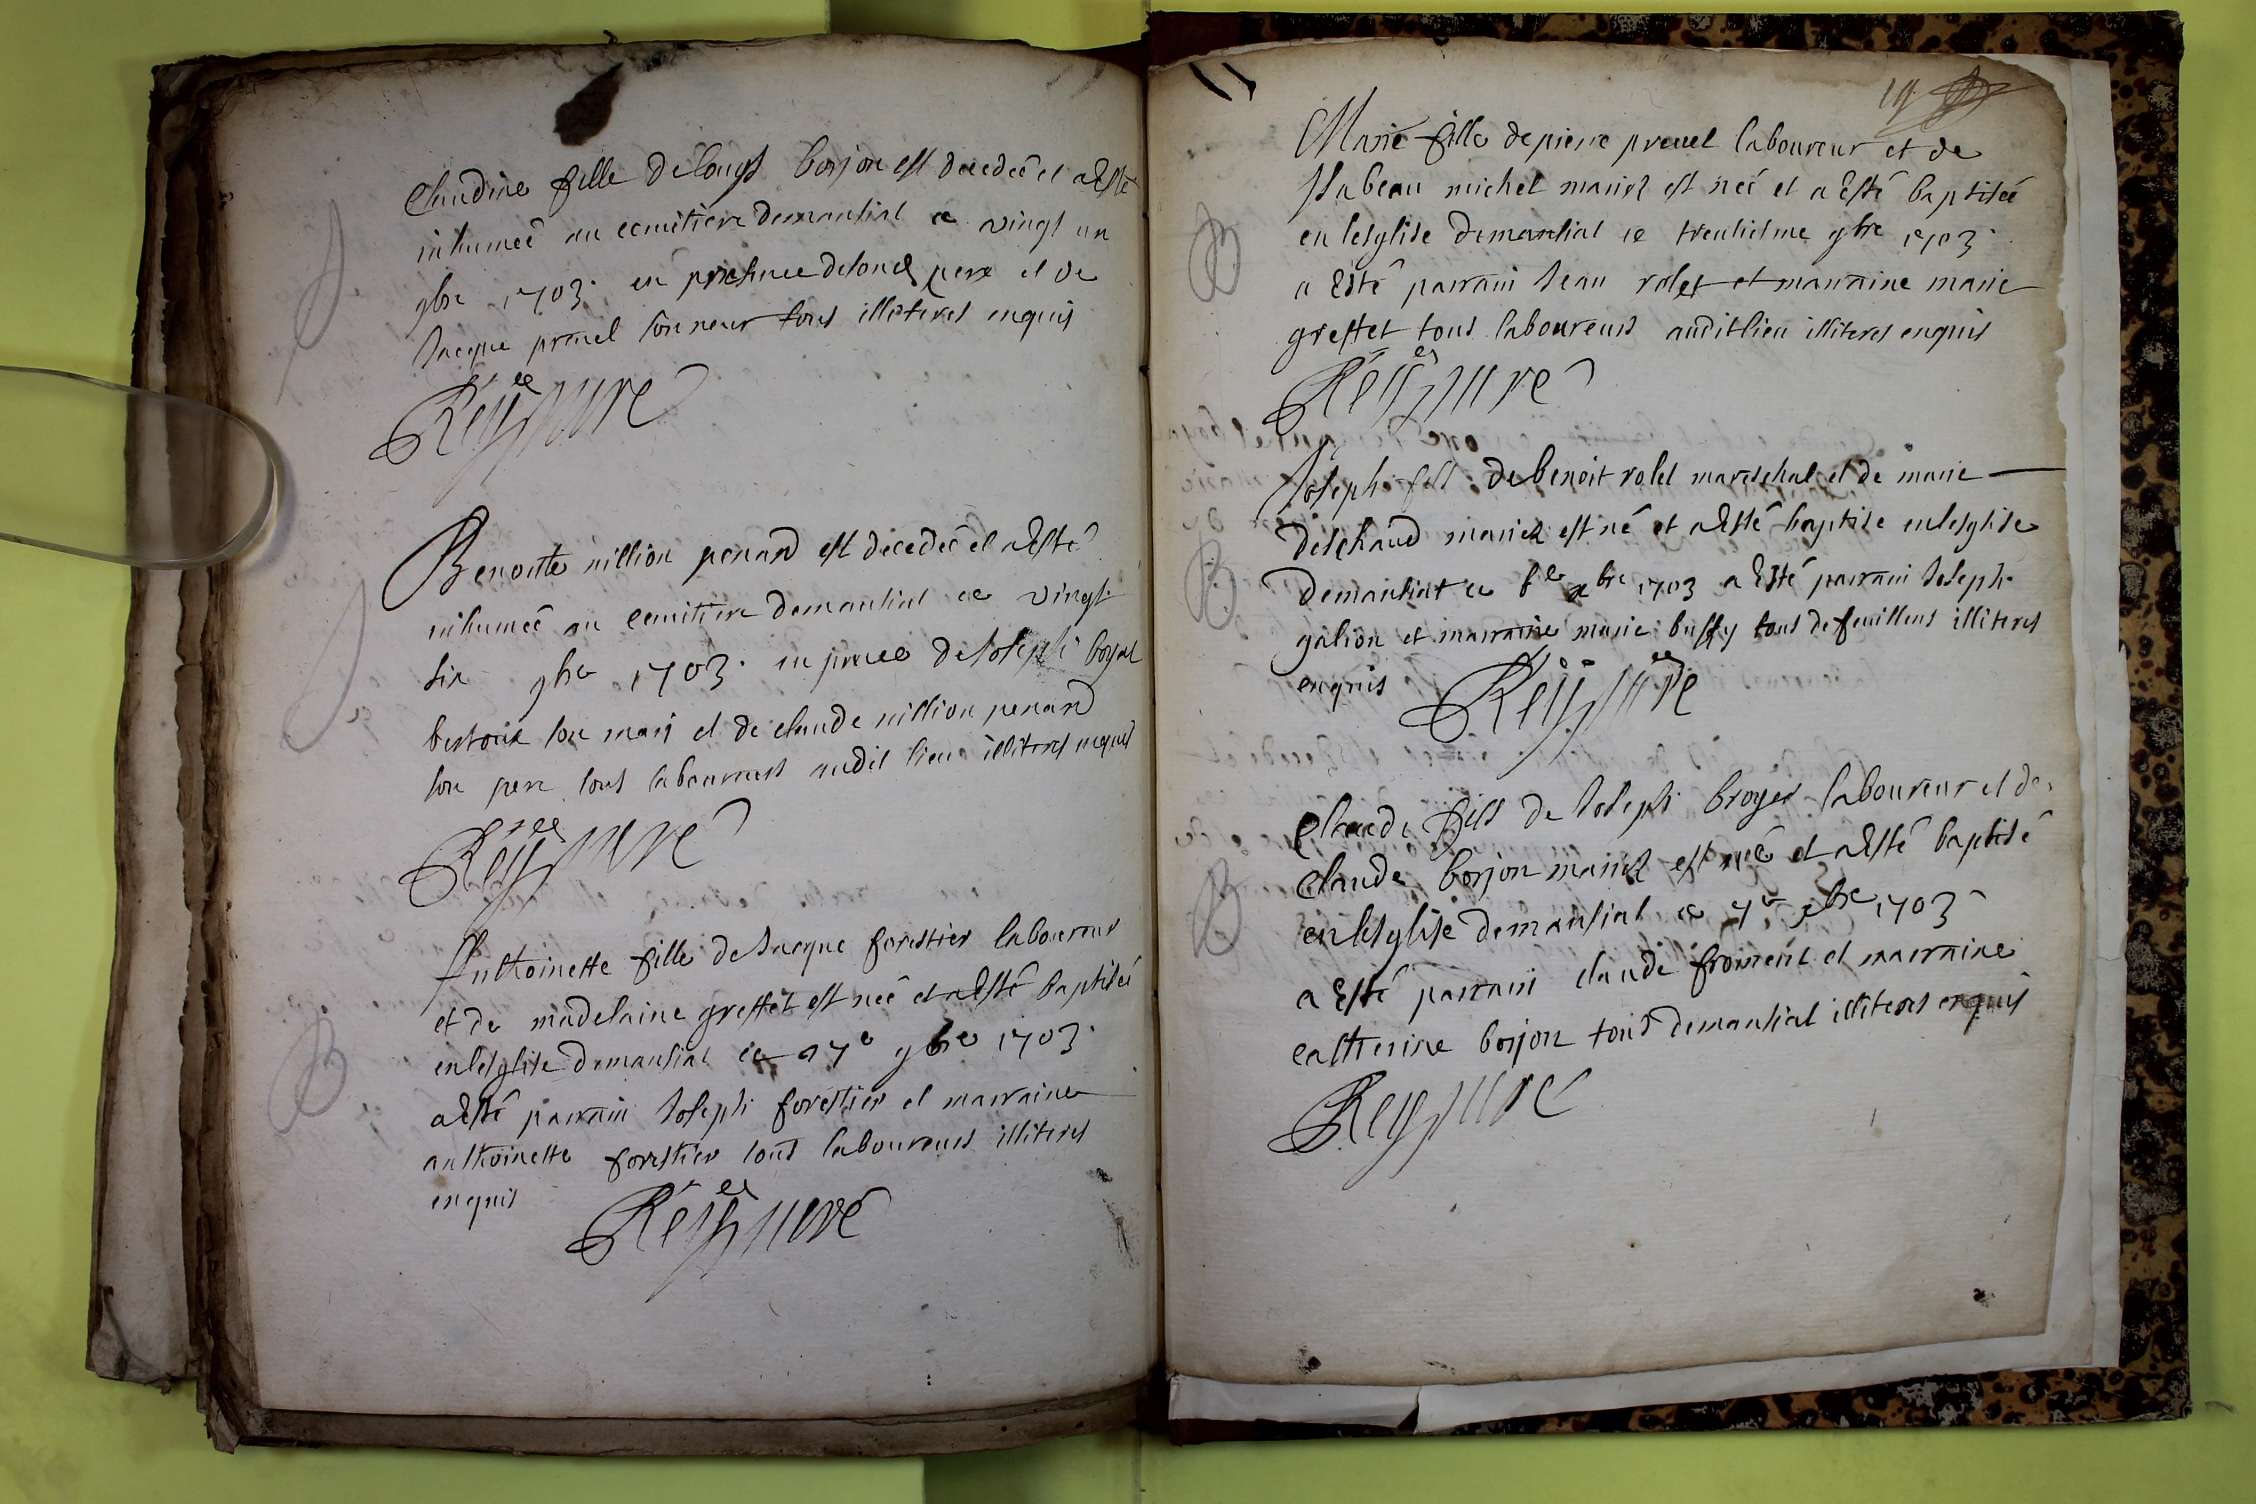 Claudine fille de Louys borjon est decedeé et a Esté
inhumeé au cemitiere demantiat ce vingt un
9bre 1703. en presence de son père et de
Jacque preuel sonneur tous illiteres enquis
Reyssure
Benoitte nillion penard est decedeé et a Esté
inhumeé au cemitiere demantiat ce vingt
six 9bre 1703. en pnce de Joseph
son mary et de claude nillion penard
son pere tous laboureurs audit lieu illiteres enquis
Reyssure
Anthoinette fille de Jacque forestier laboureur
et de madelaine greffet est neé et a Esté baptiseé
en lesglise demantiat ce 27e 9bre 1703.
a Esté parrain Joseph forestier et marraine
anthoinette forestier tous laboureurs illiteres
enquis
Reyssure
19
Marie fille de pierre preuel laboureur et de
Isabeau michel mariez est neé et a Esté baptiseé
en lesglise demantiat ce trentiesme 9bre 1703.
a Esté parrain Jean rolet et marraine marie
greffet tous laboureurs audit lieu illiteres enquis
Reyssure
Joseph fils de benoit rolet mareschal et de marie
deschaud mariez est né et a Esté baptise en lesglise
demantiat ce xbre 1703 a Esté parrain Joseph
galion et marraine marie buffy tous de feuillens illiteres
enquis
Reyssure
Claude fils de Joseph broyer laboureur et de
claude borjon mariez est neé et a Esté baptisé
en lesglise demantiat ce 7e xbre 1703
a Esté parrain claude froment et marraine
catherine borjon tous demantiat illiteres enquis
Reyssure
B
B
B
B